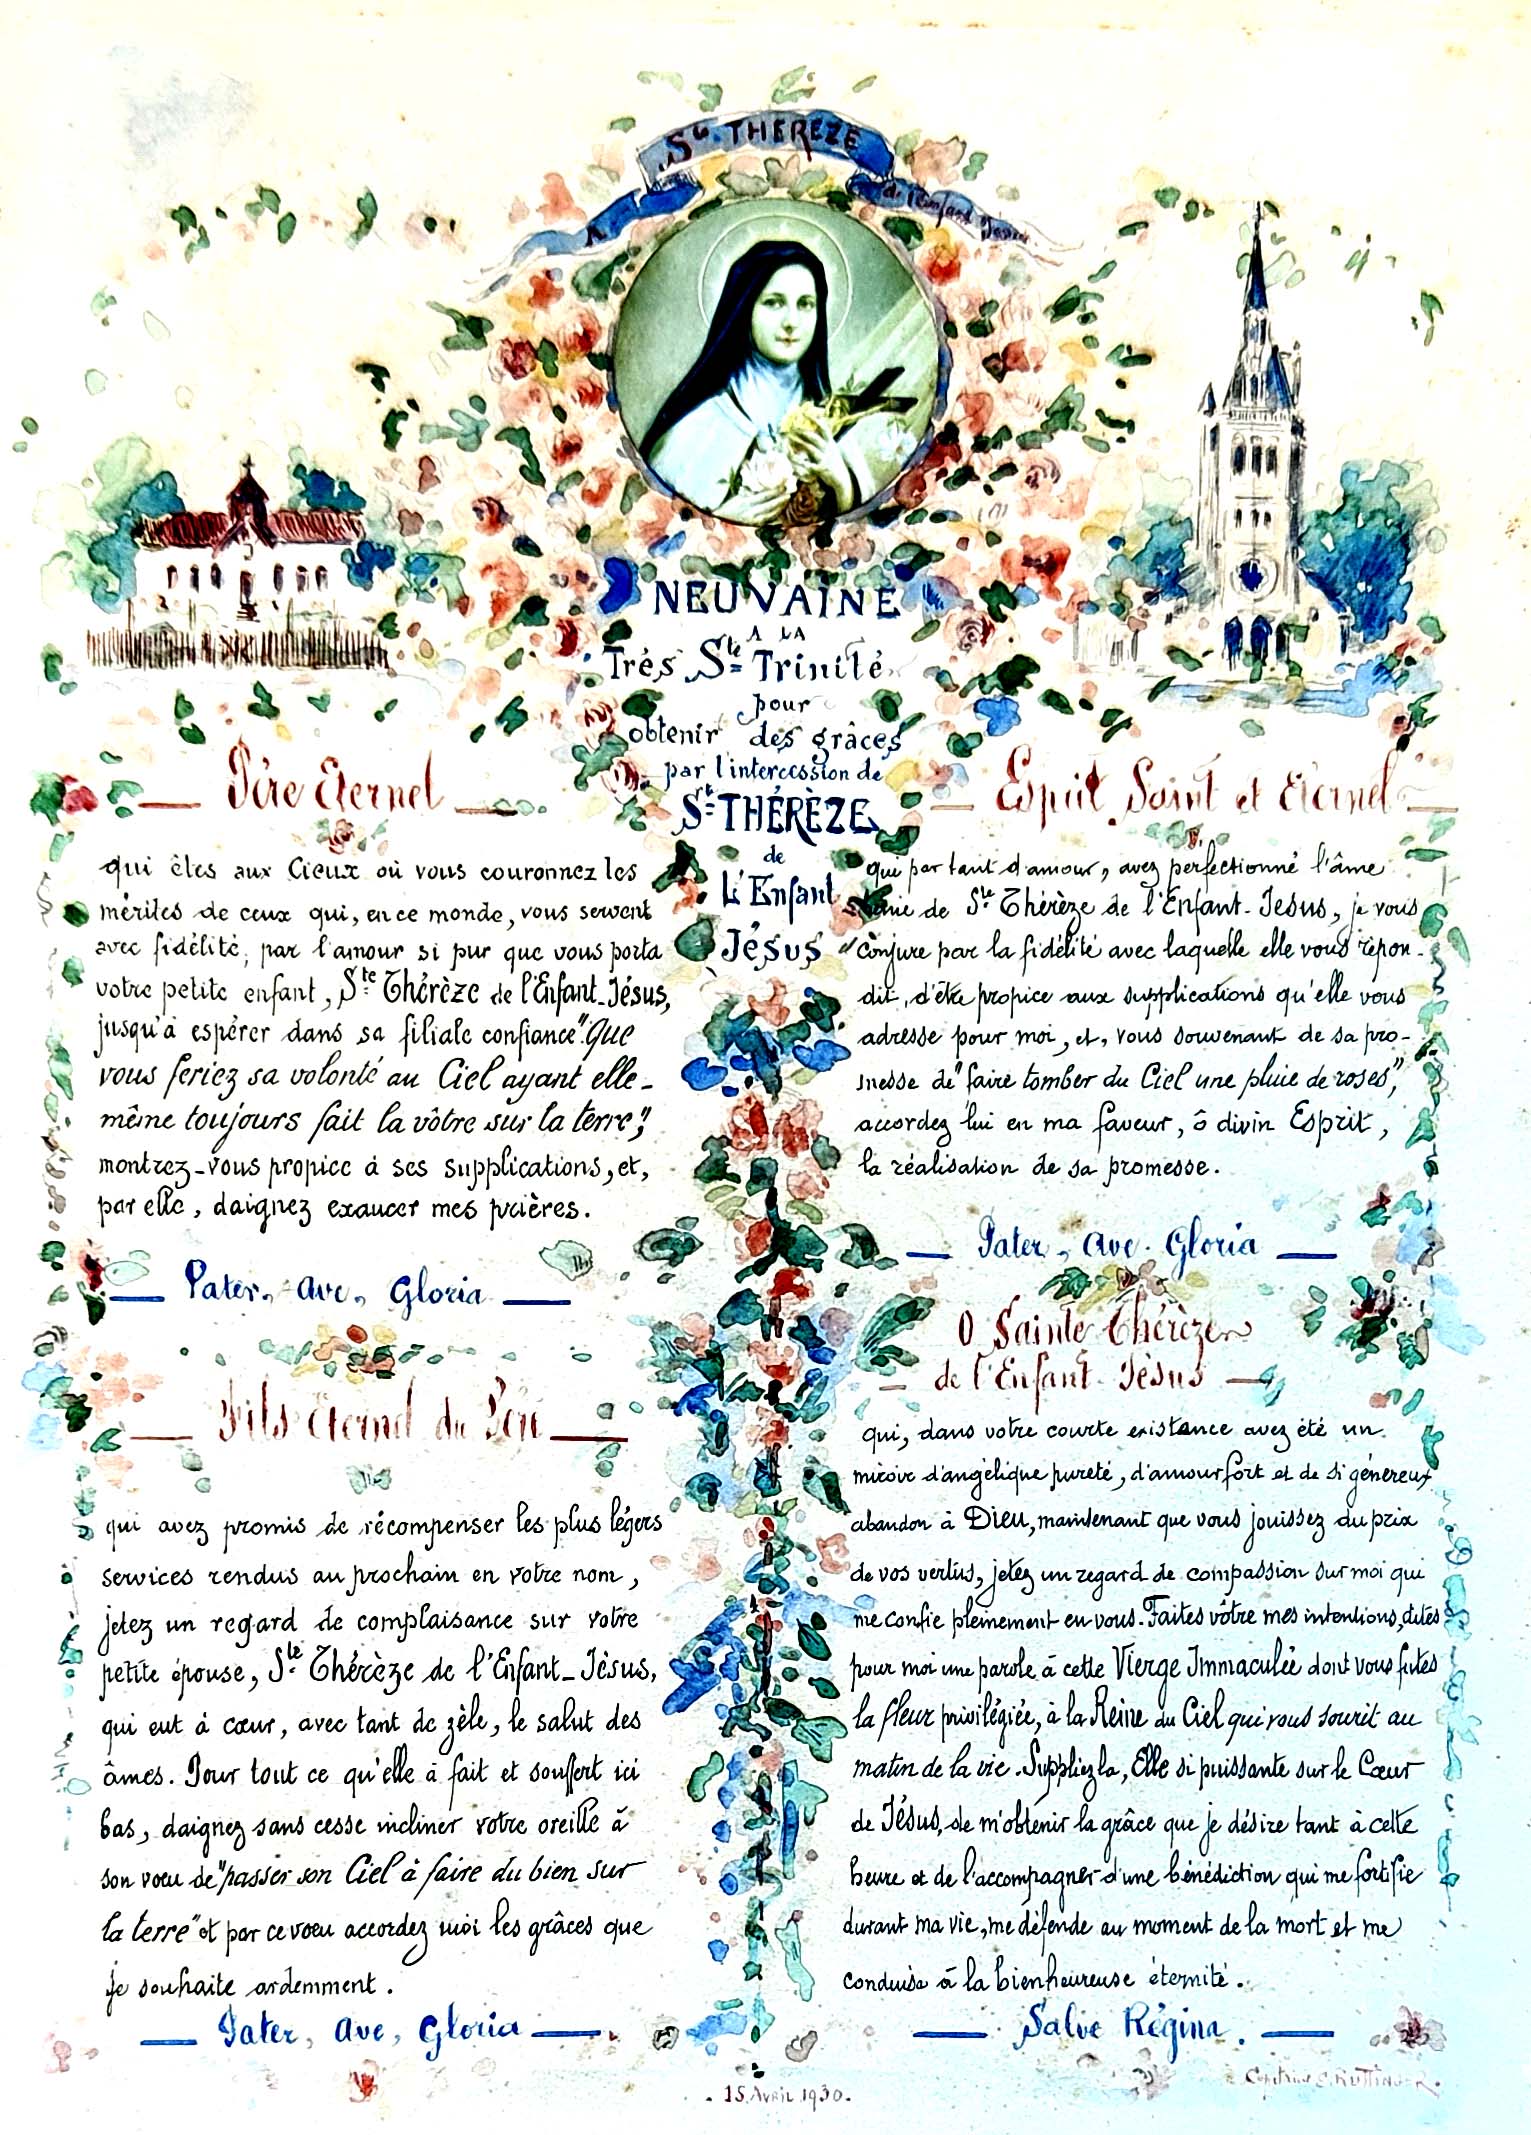 A Ste THÉRÈZE de l'Enfant Jésus
NEUVAINE
A LA
Très Ste Trinité
pour
obtenir des grâces
par l'intercession de
Ste THÉRÈZE
de
L'Enfant
Jésus
Père Eternel
qui êtes aux Cieux où vous couronnez les
mérites de ceux qui, en ce monde, vous servent
avec fidélité, par l'amour si pur que vous porta
votre petite enfant, Ste Thérèze de l'Enfant-Jésus,
jusqu'à espérer dans sa filiale confiance "que
vous feriez sa volonté au Ciel ayant elle-
même toujours fait la vôtre sur la terre",
montrez-vous propice à ses supplications, et,
par elle, daignez exaucer mes prières.
Pater, Ave, Gloria
Fils Eternel du Père
qui avez promis de récompenser les plus légers
services rendus au prochain en votre nom,
jetez un regard de complaisance sur votre
petite épouse, Ste Thérèze de l'Enfant-Jésus,
qui eut à cœur, avec tant de zèle, le salut des
âmes. Pour tout ce qu'elle à fait et souffert ici
bas, daignez sans cesse incliner votre oreille à
son vœu de "passer son Ciel à faire du bien sur
la terre" et par ce vœu accordez moi les grâces que
je souhaite ardemment.
Pater, Ave, Gloria
Esprit Saint et Eternel
qui par tant d'amour, avez perfectionné l'âme
de Ste Thérèze de l'Enfant-Jesus, je vous
conjure par la fidélité avec laquelle elle vous répon-
dit, d'être propice aux supplications qu'elle vous
adresse pour moi, et, vous souvenant de sa pro-
messe de "faire tomber du Ciel une pluie de roses",
accordez lui en ma faveur, ô divin Esprit,
la réalisation de sa promesse.
Pater, Ave, Gloria
O Sainte Thérèze
de l'Enfant-Jésus
qui, dans votre courte existance avez été un
miroir d'angélique pureté, d'amour fort et de si généreux
abandon à Dieu, maintenant que vous jouissez du prix
de vos vertus, jetez un regard de compassion sur moi qui
me confie pleinement en vous. Faites vôtre mes intentions, dites
pour moi une parole à cette Vierge Immaculée dont vous futes
la fleur privilégiée, à la Reine du Ciel qui vous sourit au
matin de la vie. Suppliez la, Elle si puissante sur le Cœur
de Jésus, de m'obtenir la grâce que je désire tant à cette
heure et de l'accompagner d'une bénédiction qui me fortifie
durant ma vie, me défende au moment de la mort et me
conduise à la bienheureuse éternité.
Salve Régina.
15 Avril 1930.